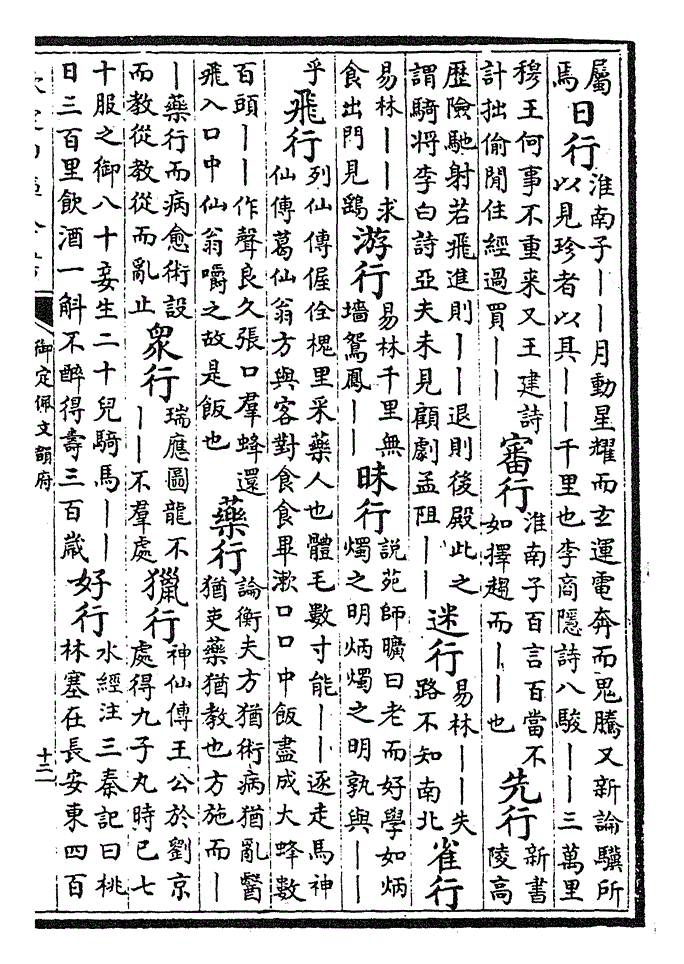 屬焉日行淮南子丨丨月動星耀而玄運電奔而鬼騰又新論驥所以見珍者以其丨丨千里也李商隱詩八駿丨丨三萬里
穆王何事不重来又王建詩計拙偷閒住經過買丨丨審行淮南子百言百當不如擇趨而丨丨也先行新書陵高
歷險馳射若飛進則丨丨退則後殿此之謂騎將李白詩亞夫未見顧劇孟阻丨丨迷行易林丨丨失路不知南北雀行
易林丨丨求食出門見鷂游行易林千里無墻鴛鳳丨丨昧行說苑師曠曰老而好學如炳燭之明炳燭之明孰與丨丨
乎飛行列仙傳偓佺槐里采藥人也體毛數寸能丨丨逐走馬神仙傳葛仙翁方與客對食食畢漱口口中飯盡成大蜂數
百頭丨丨作聲良久張口羣蜂還飛入口中仙翁嚼之故是飯也藥行論衡夫方猶術病猶亂醫猶吏藥猶教也方施而丨
丨藥行而病愈術設而教從教從而亂止眾行瑞應圖龍不丨丨不羣處獵行神仙傳王公於劉京處得九子丸時已七
十服之御八十妾生二十兒騎馬丨丨日三百里飲酒一斛不醉得壽三百歲好行水經注三秦記曰桃林塞在長安東四百
御定佩文韻府
十二